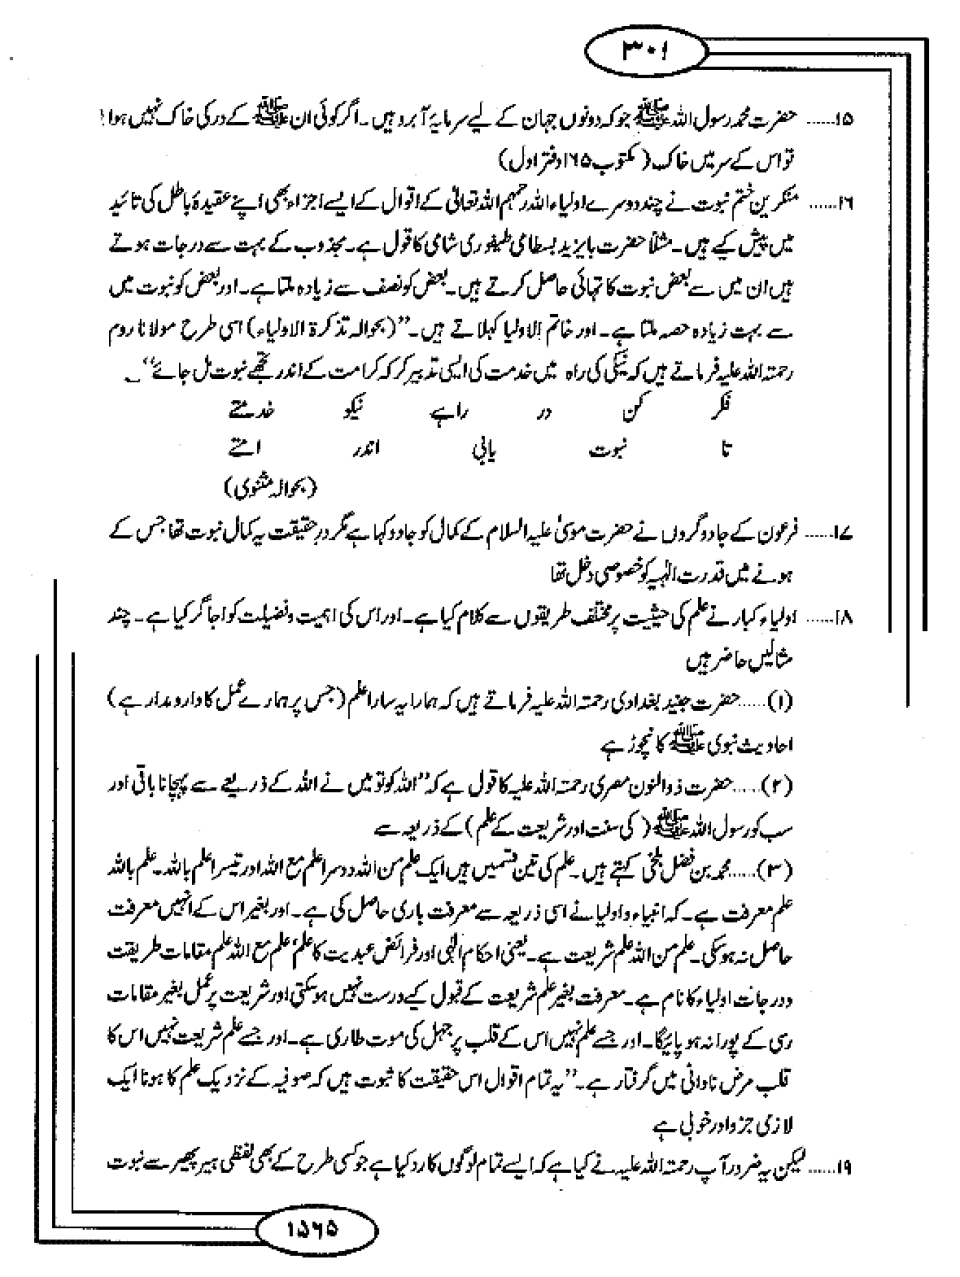 ۳۰۱
۱۵...... حضرت محمد رسول اللہ ﷺ جو کہ دونوں جہان کے لیے سرمایۂ آبرو ہیں۔ اگر کوئی ان ﷺ کے در کی خاک نہیں ہوا!
تو اس کے سر میں خاک (مکتوب ۱۶۵ دفتر اول)
۱۶...... منکرین ختم نبوت نے چند دوسرے اولیاء اللہ رحمہم اللہ تعالیٰ کے اقوال کے ایسے اجزاء بھی اپنے عقیدۂ باطل کی تائید
میں پیش کیے ہیں۔ مثلاً حضرت بایزید بسطامی طیفوری شامی کا قول ہے۔ مجذوب کے بہت سے درجات ہوتے
ہیں ان میں سے بعض نبوت کا تہائی حاصل کرتے ہیں۔ بعض کو نصف سے زیادہ ملتا ہے۔ اور بعض کو نبوت میں
سے بہت زیادہ حصہ ملتا ہے۔ اور خاتم الاولیا کہلاتے ہیں۔’’ (بحوالہ تذکرۃ الاولیاء) اسی طرح مولانا روم
رحمتہ اللہ علیہ فرماتے ہیں کہ نیکی کی راہ میں خدمت کی ایسی تدبیر کر کہ کرامت کے اندر تجھے نبوت مل جائے‘‘۔
فکر کن در راہے نیکو خدمتے
تا نبوت یابی اندر امتے
(بحوالہ مثنوی)
۱۷...... فرعون کے جادوگروں نے حضرت موسیٰ علیہ السلام کے کمال کو جادو کہا ہے مگر در حقیقت یہ کمال نبوت تھا جس کے
ہونے میں قدرت الٰہیہ کو خصوصی دخل تھا
۱۸...... اولیاء کبار نے علم کی حیثیت پر مختلف طریقوں سے کلام کیا ہے۔ اور اس کی اہمیت و فضیلت کو اجاگر کیا ہے۔ چند
مثالیں حاضر ہیں
(۱)...... حضرت جنید بغدادی رحمتہ اللہ علیہ فرماتے ہیں کہ ہمارا یہ سارا علم (جس پر ہمارے عمل کا دارومدار ہے)
احادیث نبوی ﷺ کا نچوڑ ہے
(۲)...... حضرت ذوالنون مصری رحمتہ اللہ علیہ کا قول ہے کہ ’’اللہ کو تو میں نے اللہ کے ذریعے سے پہچانا باقی اور
سب کو رسول اللہ ﷺ (کی سنت اور شریعت کے علم) کے ذریعہ سے
(۳)...... محمد بن فضل بلخی کہتے ہیں۔ علم کی تین قسمیں ہیں ایک علم من اللہ دوسرا علم مع اللہ اور تیسرا علم باللہ۔ علم باللہ
علم معرفت ہے۔ کہ انبیاء و اولیا نے اسی ذریعہ سے معرفت باری حاصل کی ہے۔ اور بغیر اس کے انہیں معرفت
حاصل نہ ہو سکی۔ علم من اللہ علم شریعت ہے۔ یعنی احکام الٰہی اور فرائض عبدیت کا علم، علم مع اللہ علم مقامات طریقت
و درجات اولیاء کا نام ہے۔ معرفت بغیر علم شریعت کے قبول کیے درست نہیں ہو سکتی اور شریعت پر عمل بغیر مقامات
رسی کے پورا نہ ہو پائیگا۔ اور جسے علم نہیں اس کے قلب پر جہل کی موت طاری ہے۔ اور جسے علم شریعت نہیں اس کا
قلب مرض نادانی میں گرفتار ہے۔’’ یہ تمام اقوال اس حقیقت کا ثبوت ہیں کہ صوفیہ کے نزدیک علم کا ہونا ایک
لازمی جزو اور خوبی ہے
۱۹...... لیکن یہ ضرور آپ رحمتہ اللہ علیہ نے کیا ہے کہ ایسے تمام لوگوں کا رد کیا ہے جو کسی طرح کے بھی لفظی ہیر پھیر سے نبوت
۱۵۶۵